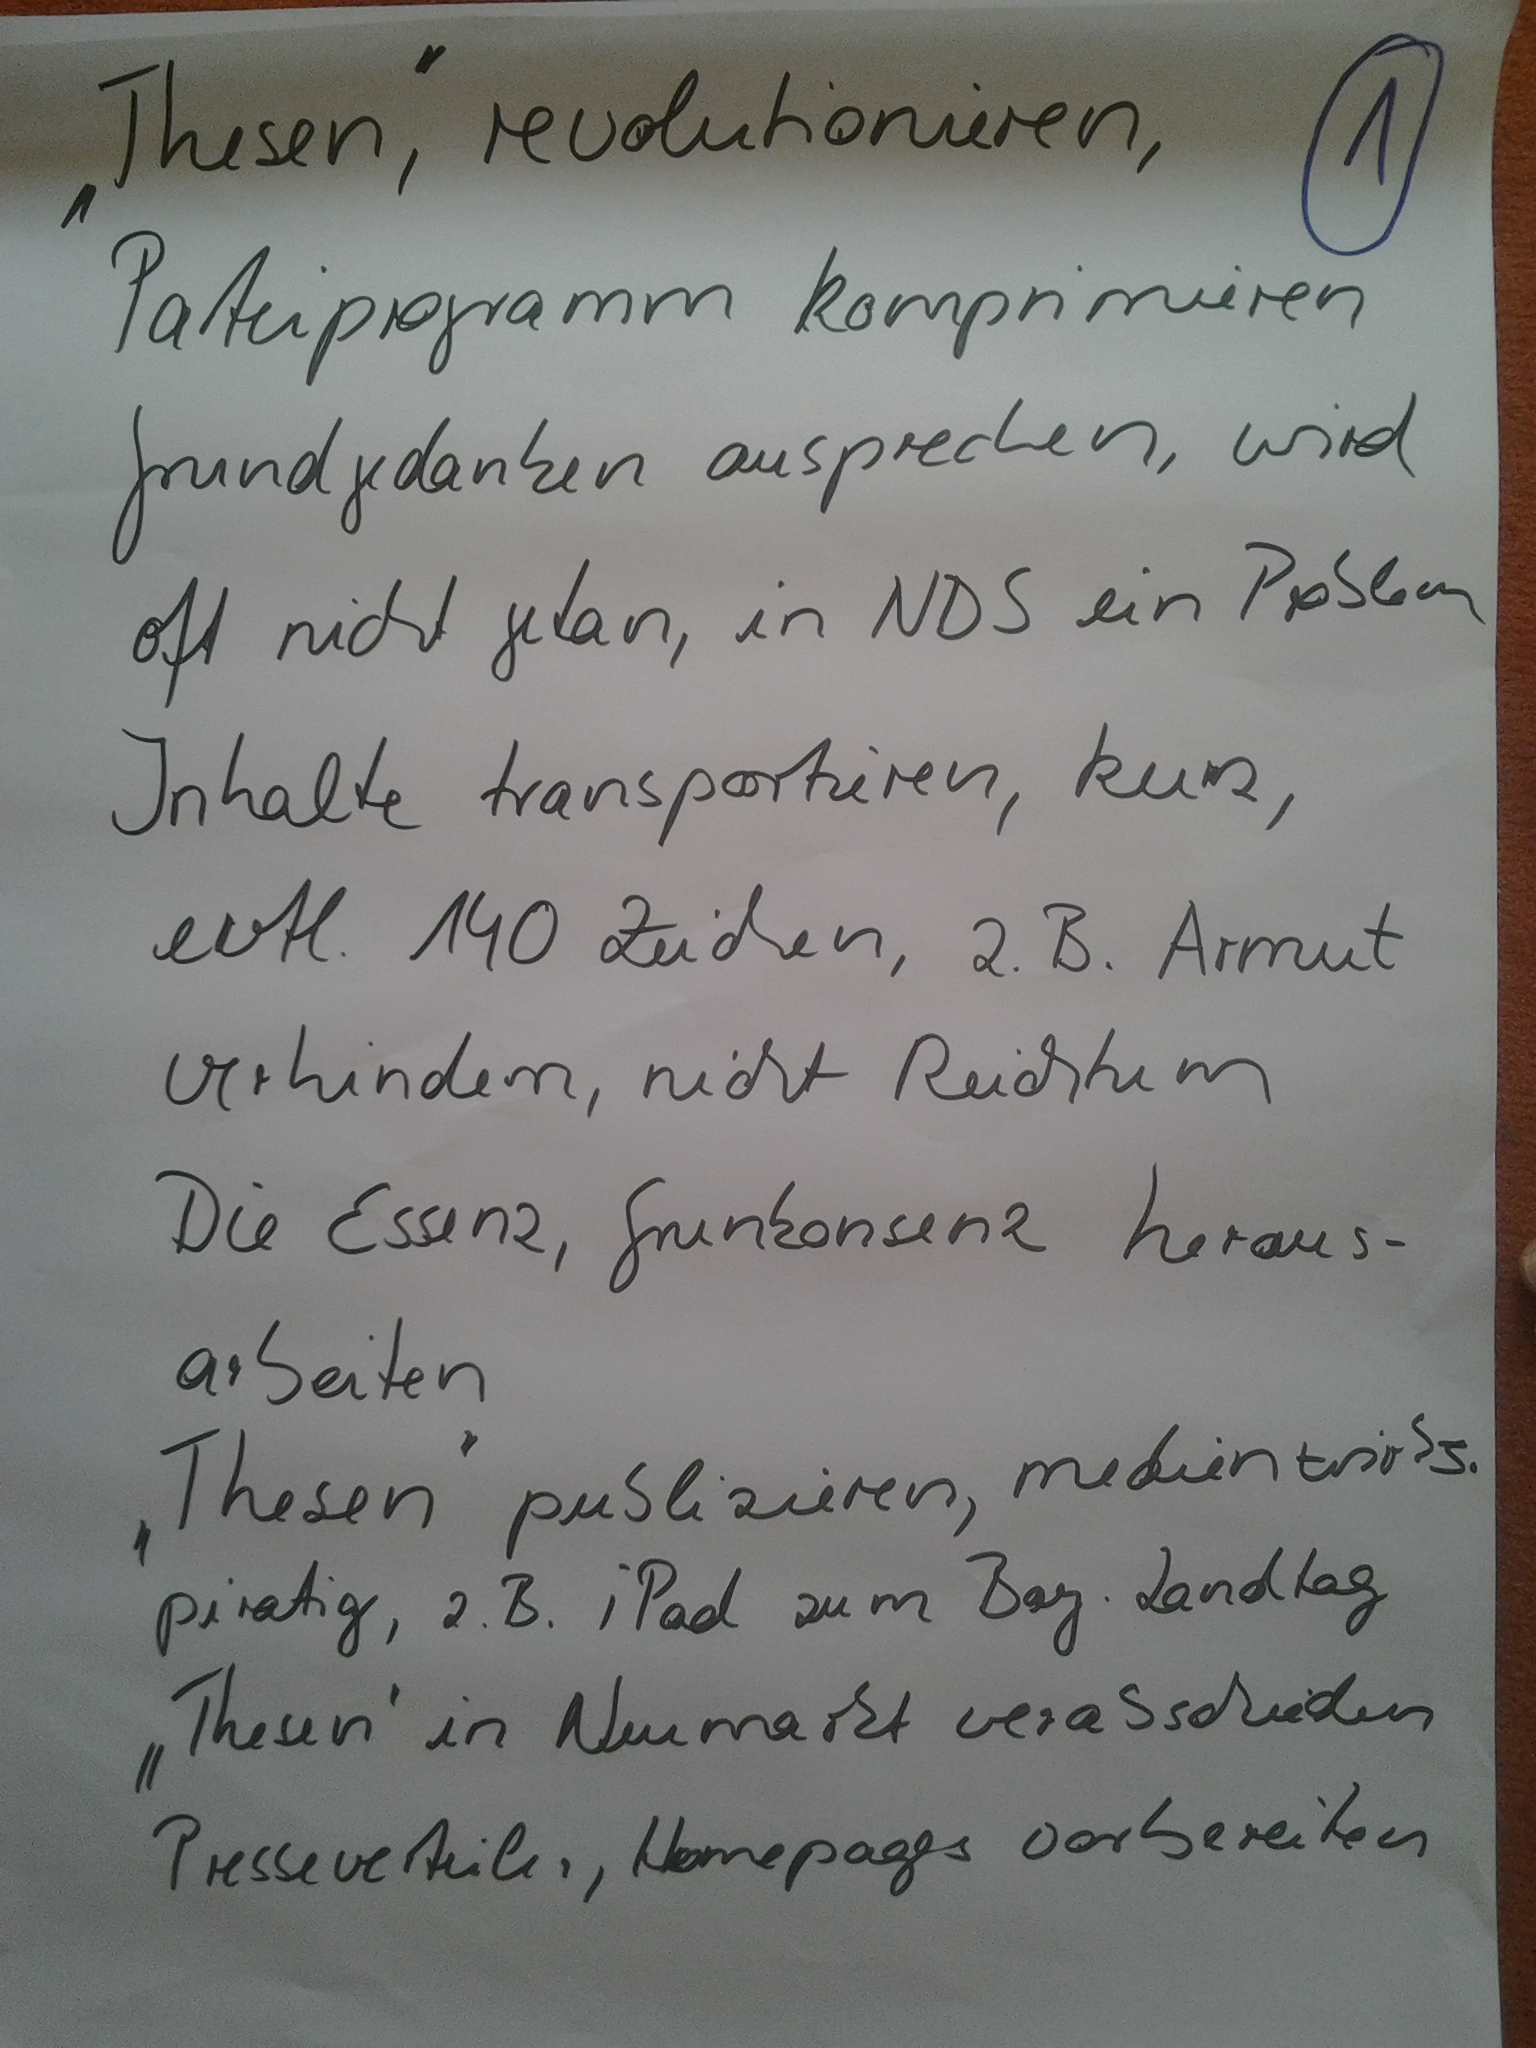 „Thesen“, revolutionieren, 1
Parteiprogramm komprimieren
Grundgedanken aussprechen, wird
oft nicht getan, in NDS ein Problem
Inhalte transportieren, kurz,
evtl. 140 Zeichen, z.B. Armut
verhindern, nicht Reichtum
Die Essenz, Grunkonsenz heraus-
arbeiten
„Thesen“ publizieren, medienwirks.
piratig, z.B. iPad zum Bay. Landtag
„Thesen“ in Neumarkt verabschieden
Presseverteiler, Homepages vorbereiten